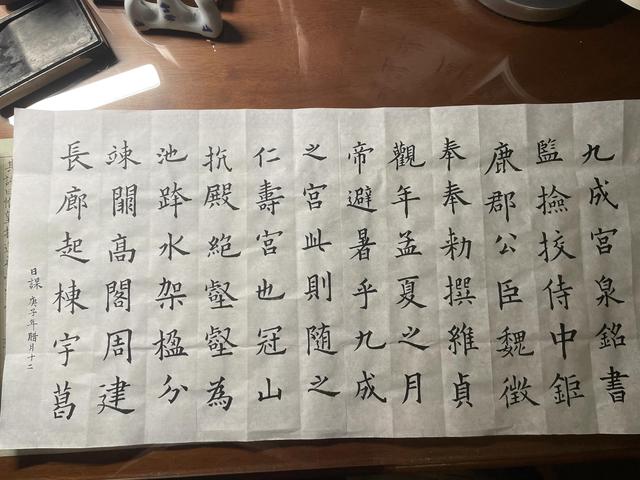 九成宮泉銘書
監撿挍侍中鉅
鹿郡公臣魏徵
奉奉勑撰維貞
觀年孟夏之月
帝避暑乎九成
之宮此則随之
仁壽宮也冠山
抗殿絶壑壑為
池跨水架楹分
竦闕髙閣周建
長廊起棟宇葛
日課 庚子年腊月十二